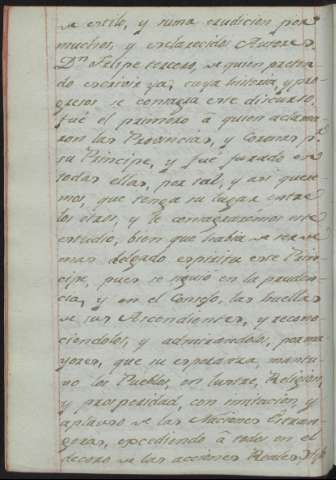 de estilo, y suma erudicion por
muchos, y esclarecidos Autores
Dn. Felipe tercero, de quien
do escrivir ya, cuya historia, y pro
gresos se consagra este discurso,
fué el primero á quien aclama
ron las Provincias, y Coronas pr.
su Principe, y fué jurado en
todas ellas, por tal, y asi quere
mos, que tenga su lugar entre
los otros, y le consagraremos este
estudio, bien que havia de ser de
mas delgado espiritu este Prin
cipe, pues se siguió en la pruden
cia, y en el Consejo, las huellas
de sus Ascendientes, y recono
ciendolos, y admirandolos, por ma
yores, que su esperanza, mantu
vo los Pueblos, en lustre, Religion,
y prosperidad, con imitacion, y
aplauso de las Naciones Estran
geras, excediendo á todos en el
decoro de las acciones Reales